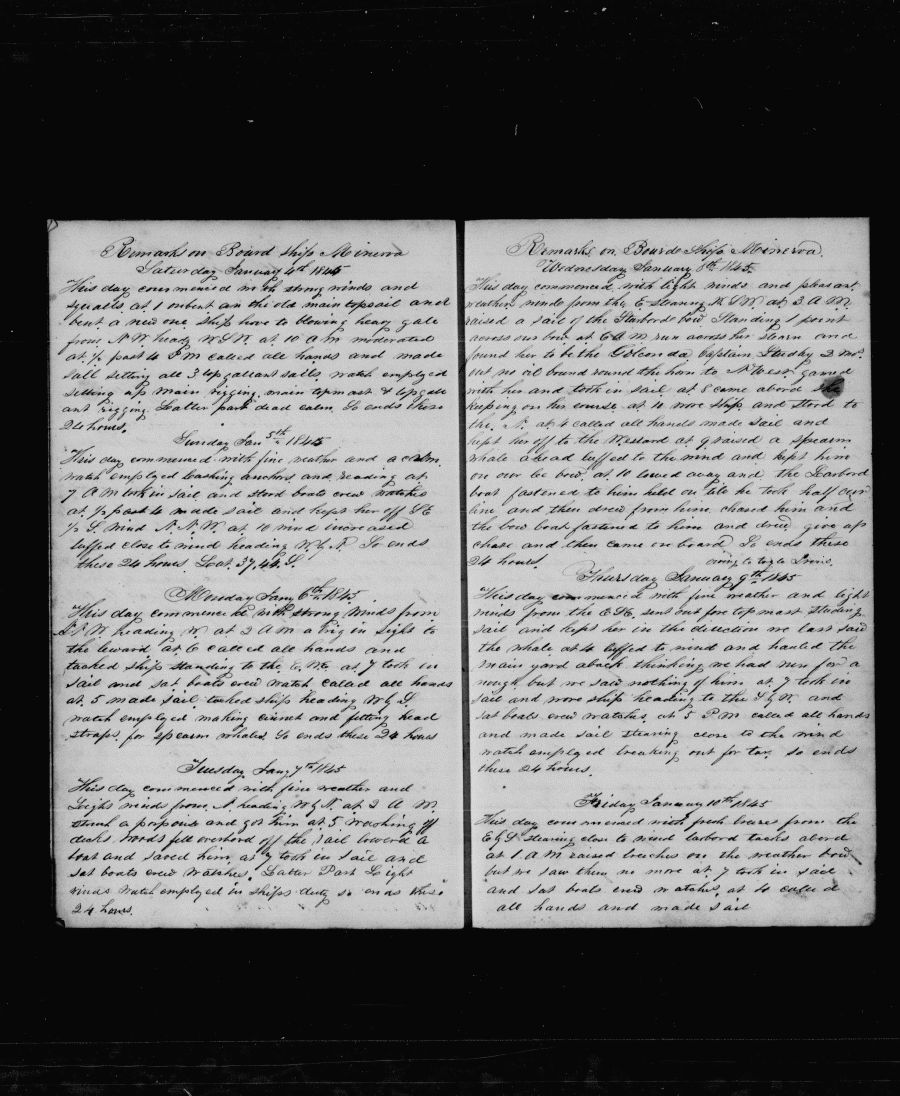 Remarks on Board Ship Minerva
Saturday January 4th 1845
This day commenced with strong winds and
squalls at 1 onbent an the old main topsail and
bent a new one Ship hove to blowing heavy gale
from N.W. heady W.S.W. at 10 A M moderated
at ½ past 4 P M called all hands and made
sail setting all 3 top gallant sails, watch employed
setting up main rigging, main topmast & topgall
ant rigging. Latter part dead calm, So ends these
24 hours.
Sunday Jan 5th 1845
This day commenced with fine weather and a calm,
watch employed lashing anchors, and reading at
7 A M took in sail and stood boats crew watches
at ½ past 4 made sail and kept her off S E
½ S. wind N. N. W. at 10 wind increased
luffed close to wind heading W. by N. So ends
these 24 hours Lat. 37,44. S.
Monday Jany 6th 1845.
This day commenced with strong winds from
N W heading W at 2 A M a brig in sight to
the leward at 6 called all hands and
tacked ship standing to the at 7 took in
sail and sat boats crew watch Called all hands
at 5 made sail tacked ship heading W by S.
watch employed making cinnet and fitting head
straps for spearm whales So ends these 24 hours
Tuesday Jany 7th 1845
This day commenced with fine weather and
Light winds from N heading W by N. at 2 A M.
struck a propois and got him at 5 washing off
decks. Woods fell overbord off the rail lowerd a
boat and saved him, at 7 took in sail and
sat boats crew watches, Latter Part Light
winds watch employed in ships duty so ends these
24 hours.
Remarks on Bourde Ship Minerva
Wednesday January 8th 1845.
This day commenced with light winds and pleasant
weather winds from the E stearing W S W at 3 A M
raised a sail of the Starborde bow Standing 1 point
across our bow at 6 A M run across her stearn and
found her to be the Golconda Captain 2 Mos.
out no oil bound round the horn to N West gamed
with her and took in sail at 8 came abord She
keeping on her course at 10 wore ship and stood to
the N. at 4 called all hands made sail and
kept her off to the Westard at 9 raised a spearm
whale ahead luffed to the wind and kept him
on our lee bow, at 10 lowed away and the Larbord
boat fastened to him held on till he took half our
line and then drew from him chased him and
the bow boat fastened to him and drew give up
chase and then came on board So ends these
24 hours. owing to togle Irons.
Thursday January 9th 1845
This day commenced with fine weather and light
winds from the E.S.E. sent out fore top mast studing
sail and kept her in the direction we last saw
the whale at 4 luffed to wind and hauled the
main yard aback thinking we had run far e
nough but we saw nothing of him at 7 took in
sail and wore ship heading to the and
sat boats crew watches, at 5 P M called all hands
and made sail stearing close to the wind
watch employed breaking out for tar. so ends
these 24 hours.
Friday January 10th 1845
This day commenced with fresh breses from the
E by S stearing close to wind larbord tacks abord
at 1 A M raised breeches on the weather bow
but we saw them no more at 7 took in sail
and sat boats crew watches, at 4 called
all hands and made sail